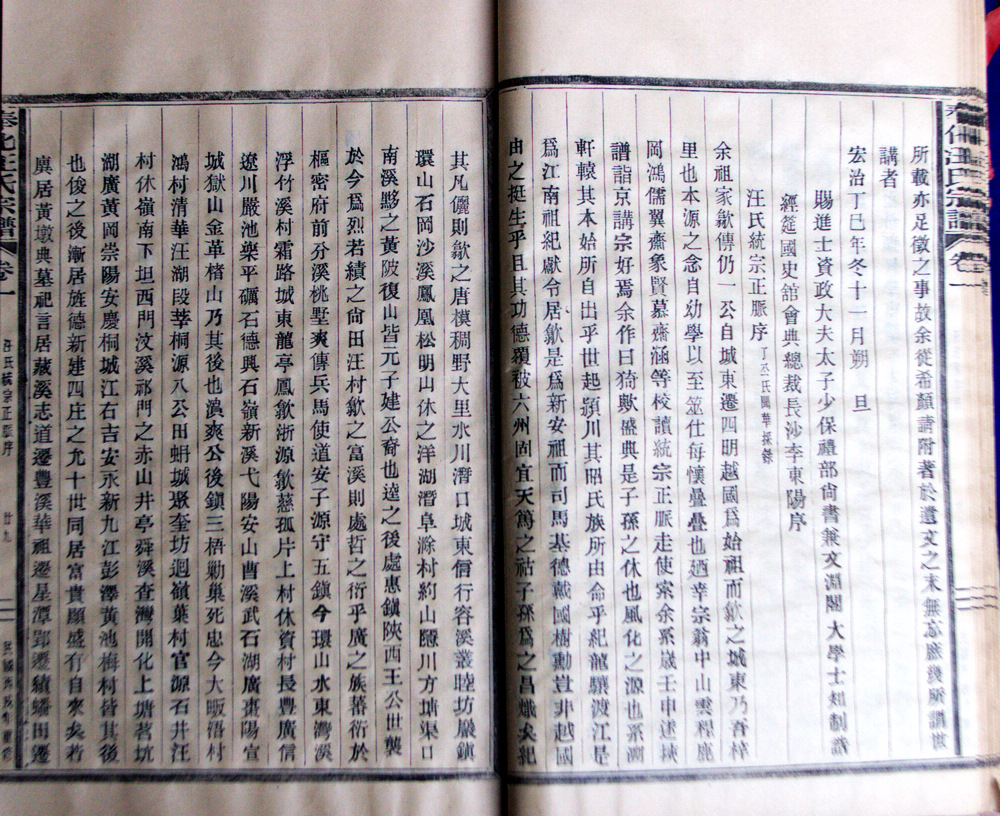 所載亦足徵之事故余從希顏請附著於遺文之末無忘應幾所謂世
講者
宏治丁巳年冬十一月朔 旦
賜進士資政大夫太子少保禮部尙書兼文淵閣大學士知制誥
經筵國史舘會典總裁長沙李東陽序
汪氏統宗正脈序
余祖家歙傳仍一公自城東遷四明越國爲始祖而歙之城東乃吾梓
里也本源之念自幼學以至筮仕每懷疊疊也廼幸宗翁中山雲程鹿
岡鴻儒翼齋象賢慕齋涵等校讀統宗正脈走使索余系歲壬申述
譜詣京講宗好焉余作曰猗歟盛典是子孫之休也風化之源也系溯
軒轅其本始所自出乎世起潁川其昭氏族所由命乎紀龍驤渡江是
爲江南祖紀獻令居歙是爲新安祖而司馬基德戴國樹勳豈非越國
由之挺生乎且其功德覆被六州固宜天篤之祜子孫爲之昌熾矣紀
其凡儷則歙之唐模稠野大里水川潛口城東信行容溪叢睦坊巖鎭
環山石岡沙溪鳳凰松明山休之洋湖潛阜滁村約山隱川方塘渠口
南溪黟之黃陂復山皆元子建公裔也達之後處惠鎭陝西王公世襲
於今爲烈若績之尙田汪村歙之富溪則處哲之衍乎廣之族蕃衍於
樞密府前分溪桃墅爽傳兵馬使道安子源守五鎭今環山水東灣溪
浮竹溪村霜路城東龍亭鳳歙浙源歙慈孤片上村休資村長豐廣信
遼川嚴池樂平礪石德興石嶺新溪弋陽安山曹溪武石湖廣棗陽宣
城嶽山金革楮山乃其後也濵爽公後鎭三梧勦巢死忠今大畈浯村
鴻村清華汪湖段莘桐源八公田蚦城聚奎坊迴嶺葉村官源石井汪
村休嶺南下坦西門汶溪祁門之赤山井亭舜溪查灣開化上塘茗坑
湖廣黃岡崇陽安慶桐城江右吉安永新九江彭澤黃池梅村皆其後
也俊之後漸居旌德新建四庄之允十世同居富貴顯盛有自來矣若
廙居黃墩典墓祀言居藏溪志道遷豐溪華祖遷星潭鄂遷績蟠田遷
奉化汪氏宗譜 卷一
汪氏統宗正脈序
廿九